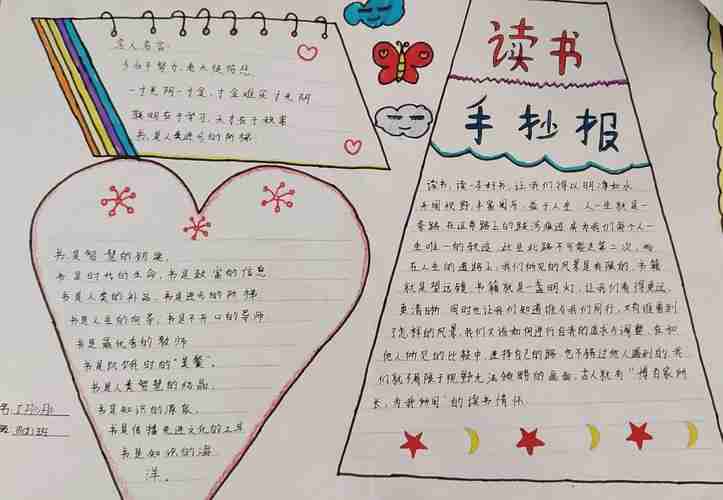 名人名言:
少小不努力,老大徒伤悲
一寸光阴一寸金,寸金难买寸光阴
聪明在于学习,天才在于积累
书,是人类进步的阶梯
读书
手抄报
书是智慧的钥匙
书是时代的生命,书是致富的信息
书是人类的礼品,书是进步的阶梯
书是人生的向导,书是不开口的导师
书是最优秀的教师
书是饥饿时的"美餐"。
书是人类智慧的结晶。
书是知识的源泉。
书是传播先进文化的工具
书是知识的海
洋。
读书,读一本好书,让我们得以明净如水
开阔视野,丰富阅历,益于人生 人一生就是一
条路,在这条路上的跋涉痕迹成为我们每个人一
生唯一的轨迹,此且此路不可能走第二次,而
在人生的道路上,我们所见的风景是有限的,书籍
就是望远镜,书籍就是一盏明灯,让我们看得更远,
更清晰,同时也让我们知道谁与我们同行,又有谁看到
了怎样的风景,我们又该如何进行自我的追求与调整,在和
他人所见的比较中,选择自己的路,也不错过他人盛到的,我
们就不局限于视野无法领略的画面,古人就有"博百家所
长,为我所用"的读书情怀